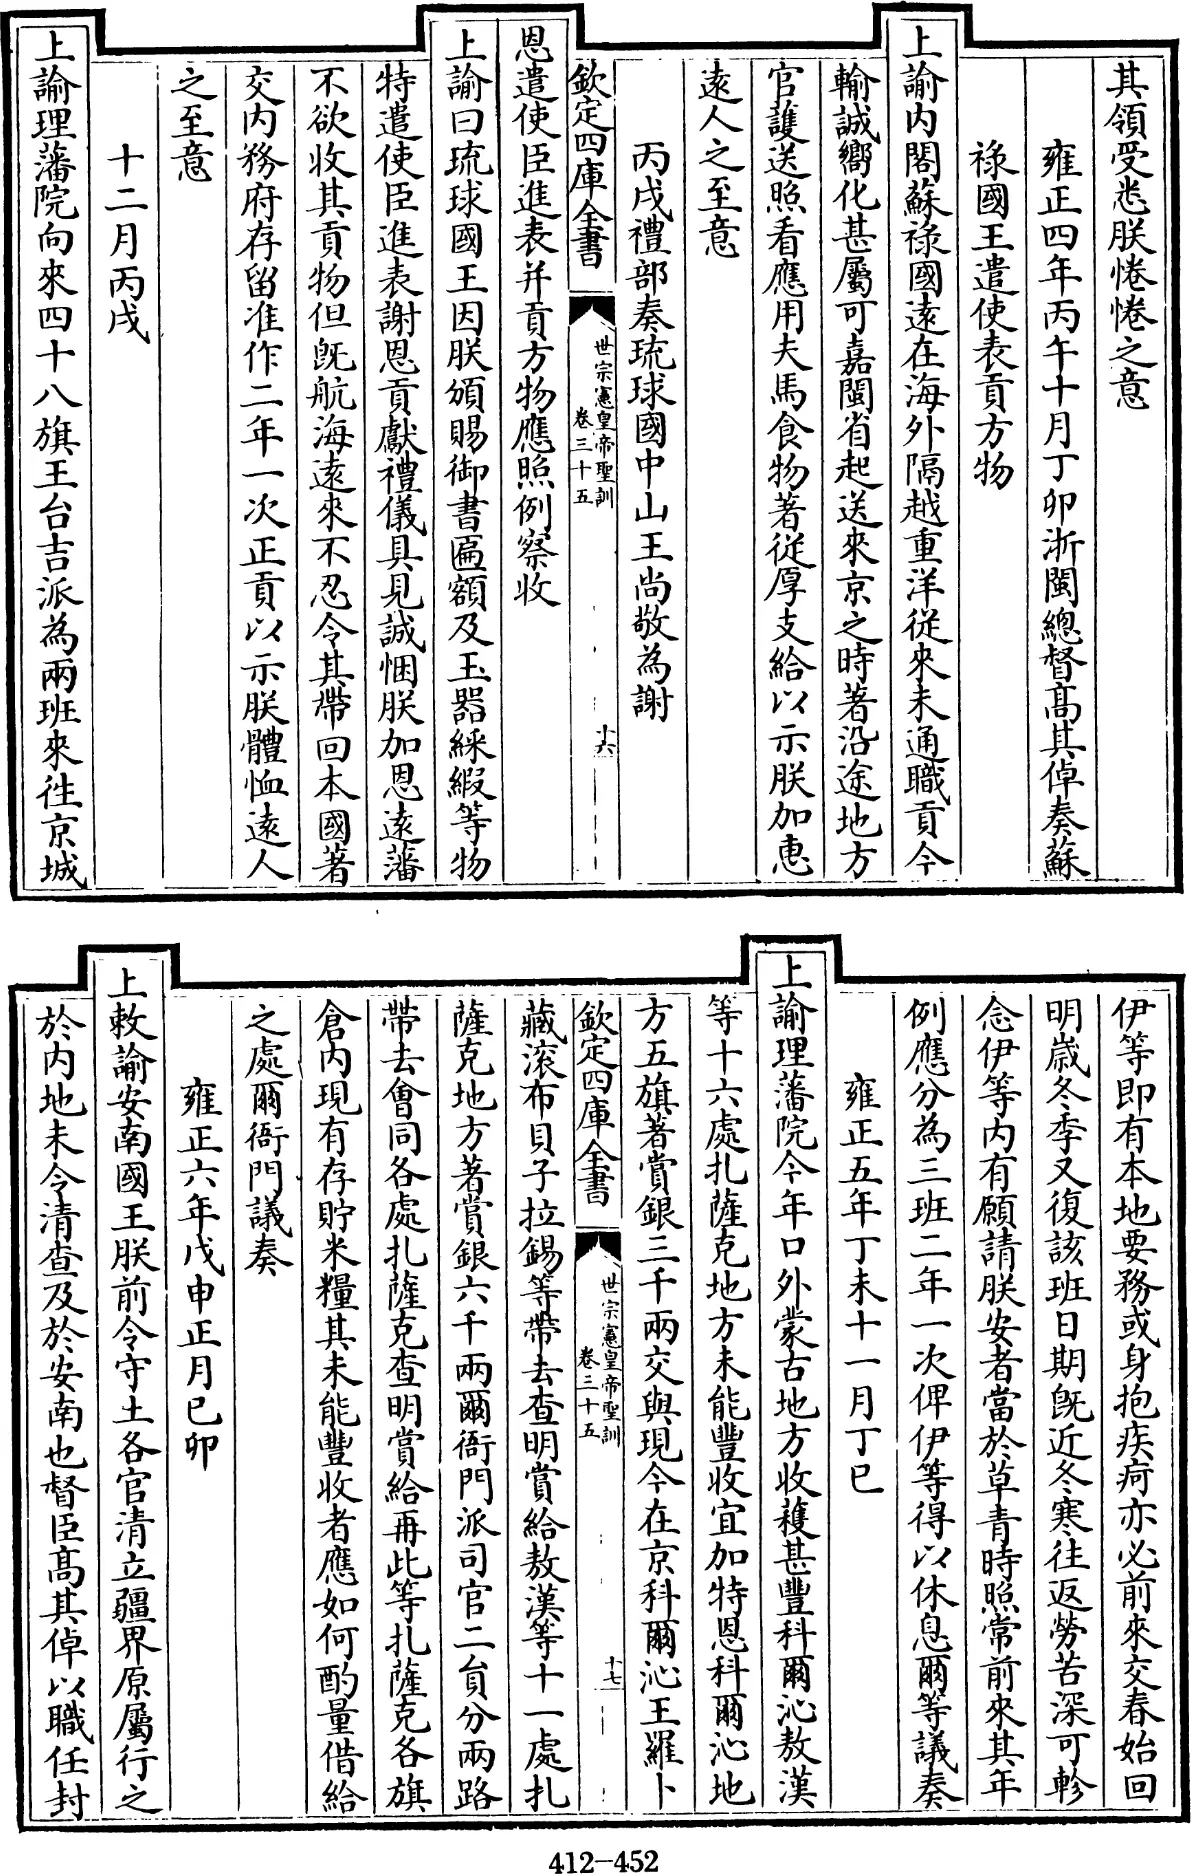 其領受悉朕惓惓之意
雍正四年丙午十月丁卯浙閩總督高其倬奏蘇
祿國王遣使表貢方物
上諭内閣蘇祿國遠在海外隔越重洋從來未通職貢今
輸誠嚮化甚屬可嘉閩省起送來京之時著沿途地方
官護送照看應用夫馬食物著從厚支給以示朕加惠
遠人之至意
丙戌禮部奏琉球國中山王尚敬為謝
欽定四庫全書
世宗憲皇帝聖訓
卷三十五
十六
恩遣使臣進表并貢方物應照例察收
上諭曰琉球國王因朕頒賜御書匾額及玉器綵緞等物
特遣使臣進表謝恩貢獻禮儀具見誠悃朕加恩遠藩
不欲收其貢物但既航海遠來不忍令其帶回本國著
交内務府存留准作二年一次正貢以示朕體恤遠人
之至意
十二月丙戌
上諭理藩院向來四十八旗王台吉派為兩班來往京城
伊等即有本地要務或身抱疾疴亦必前來交春始回
明歲冬季又復該班日期既近冬寒往返勞苦深可軫
念伊等内有願請朕安者當於草青時照常前來其年
例應分為三班二年一次俾伊等得以休息爾等議奏
雍正五年丁未十一月丁巳
上諭理藩院今年口外蒙古地方收穫甚豐科爾沁敖漢
等十六處扎薩克地方未能豐收宜加特恩科爾沁地
方五旗著賞銀三千兩交與現今在京科爾沁王羅卜
欽定四庫全書
世宗憲皇帝聖訓
卷三十五
十七
藏滾布貝子拉錫等帶去查明賞給敖漢等十一處扎
薩克地方著賞銀六千兩爾衙門派司官二員分兩路
帶去會同各處扎薩克查明賞給再此等扎薩克各旗
倉内現有存貯米糧其未能豐收者應如何酌量借給
之處爾衙門議奏
雍正六年戊申正月己卯
上敕諭安南國王朕前令守土各官清立疆界原屬行之
於内地未令清查及於安南也督臣高其倬以職任封
412-452